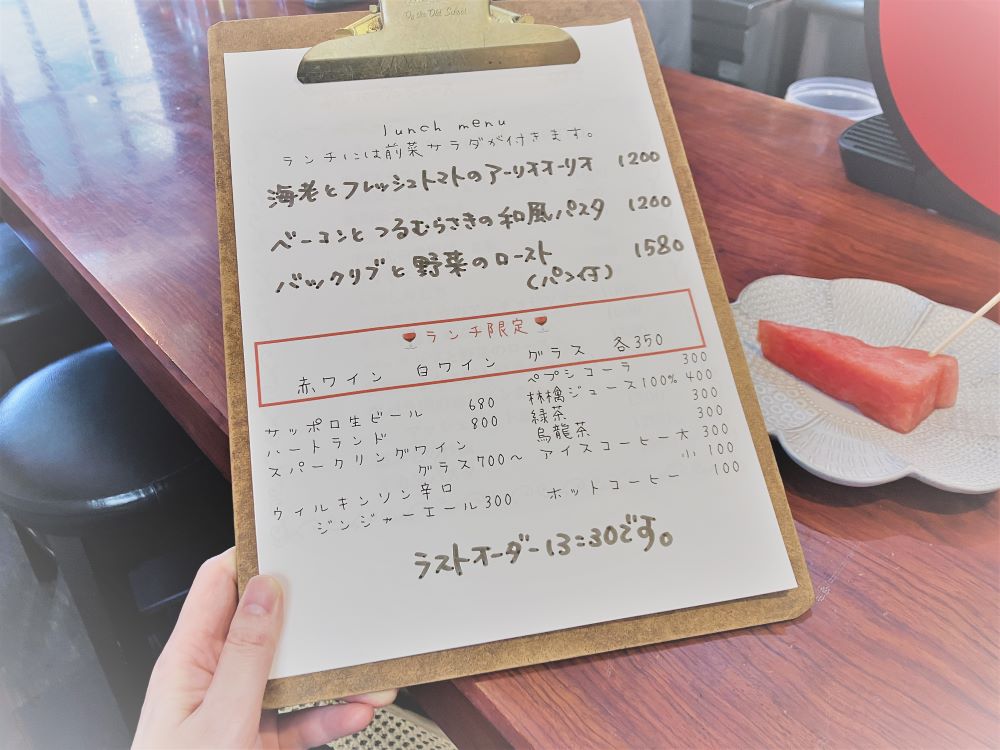 lunch menu
ランチには前菜サラダが付きます。
海老とフレッシュトマトのアーリオオーリオ 1200
ベーコンとつるむらさきの和風パスタ 1200
バックリブと野菜のロースト 1580
(パン付)
ランチ限定
赤ワイン 白ワイン グラス 各350
サッポロ生ビール 680
ハートランド 800
スパークリングワイン
グラス700〜
ウィルキンソン辛口
ジンジャーエール300
ペプシコーラ 300
林檎ジュース100% 400
緑茶 300
烏龍茶 300
アイスコーヒー大 300
小 100
ホットコーヒー 100
ラストオーダー13:30です。